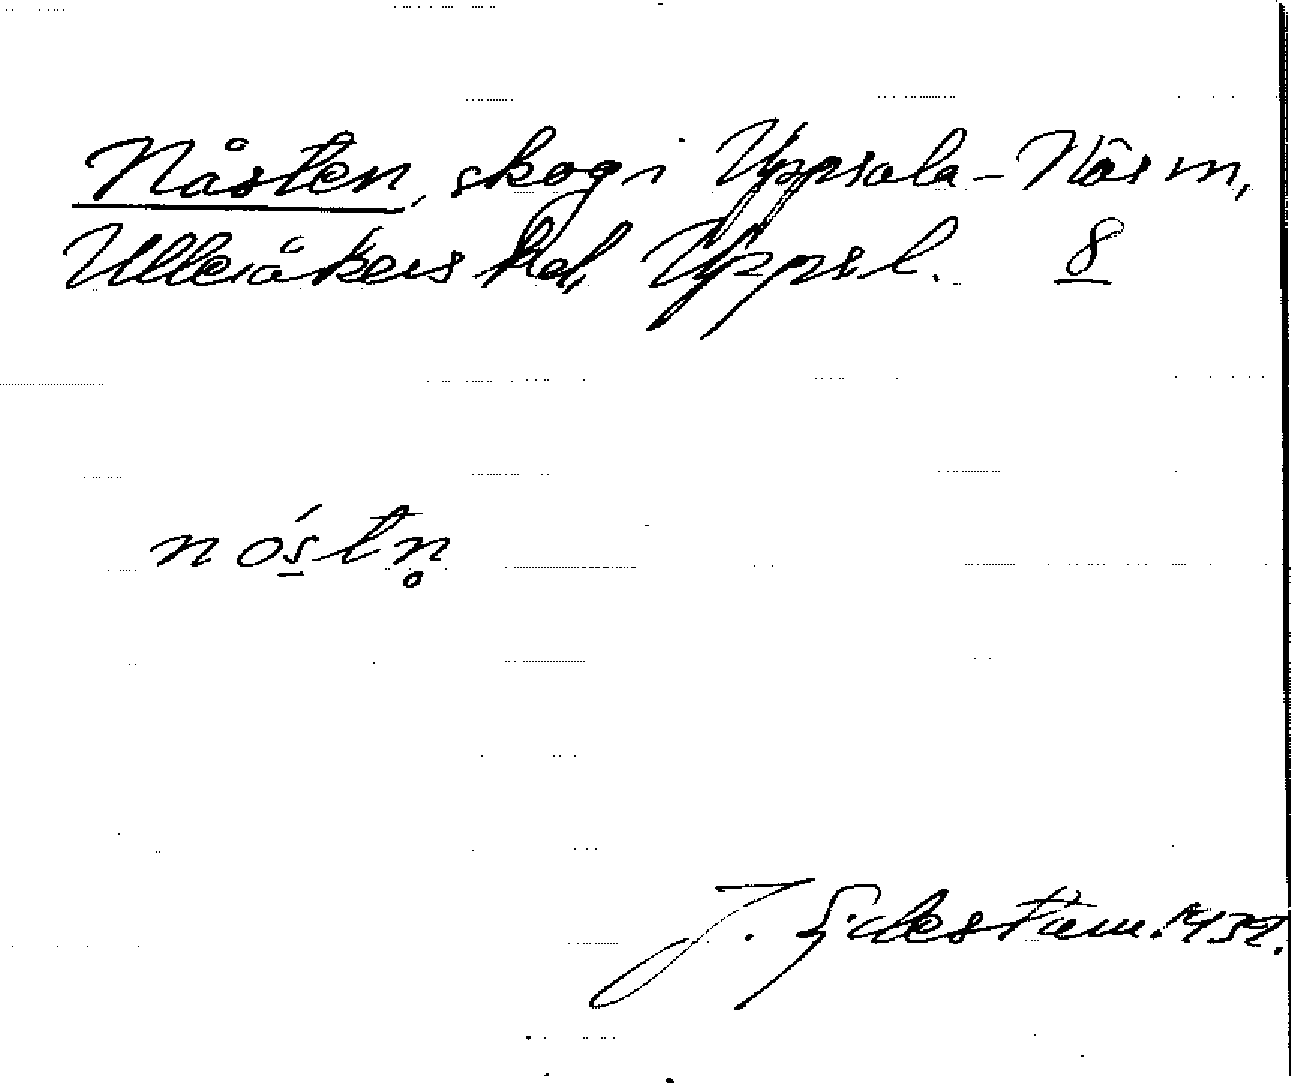 Nåsten, skog i Uppsala-Näs sn,
Ulleråkers hd, Uppsl. 8
nóstn̥
J. Sidestam. 1937.